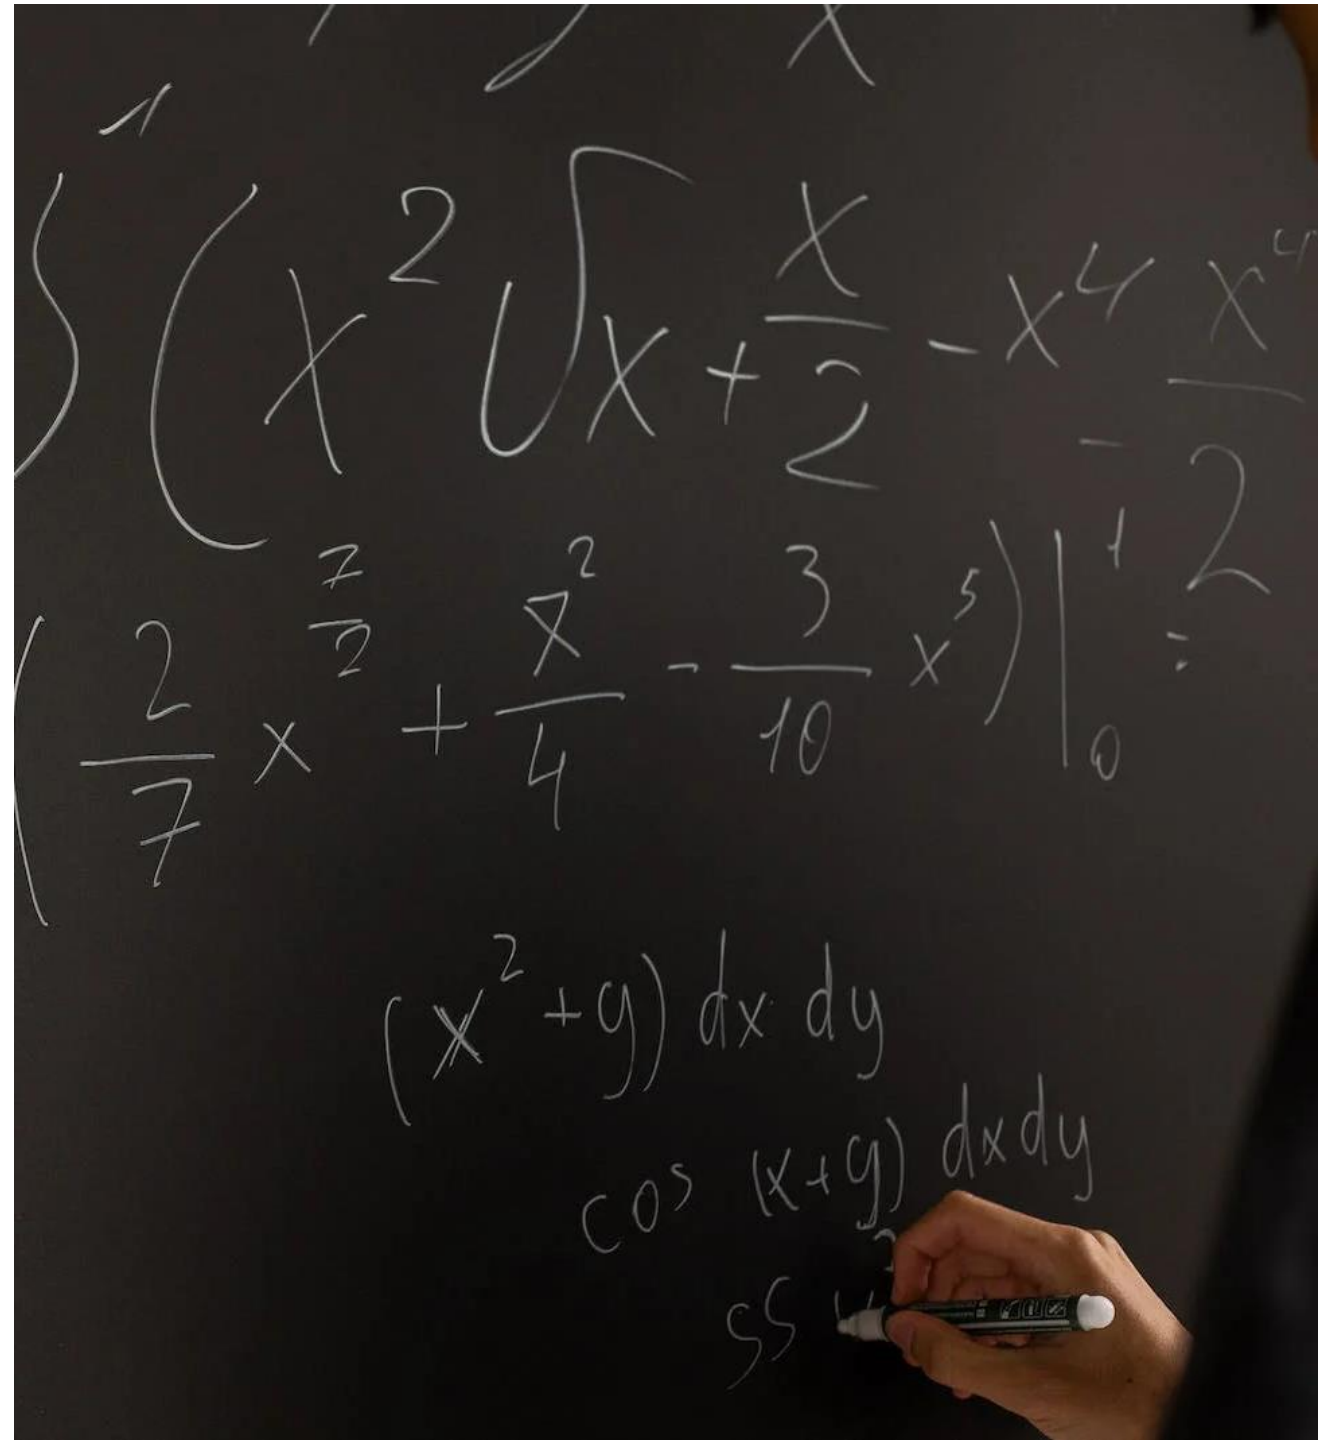 ∫¹ (x² √x + x/2 - x⁴ - x⁴/2
(2/7 x^(7/2) + x²/4 - 3/10 x⁵) |₀¹ =
(x² + y) dx dy
cos (x+y) dx dy
∫∫